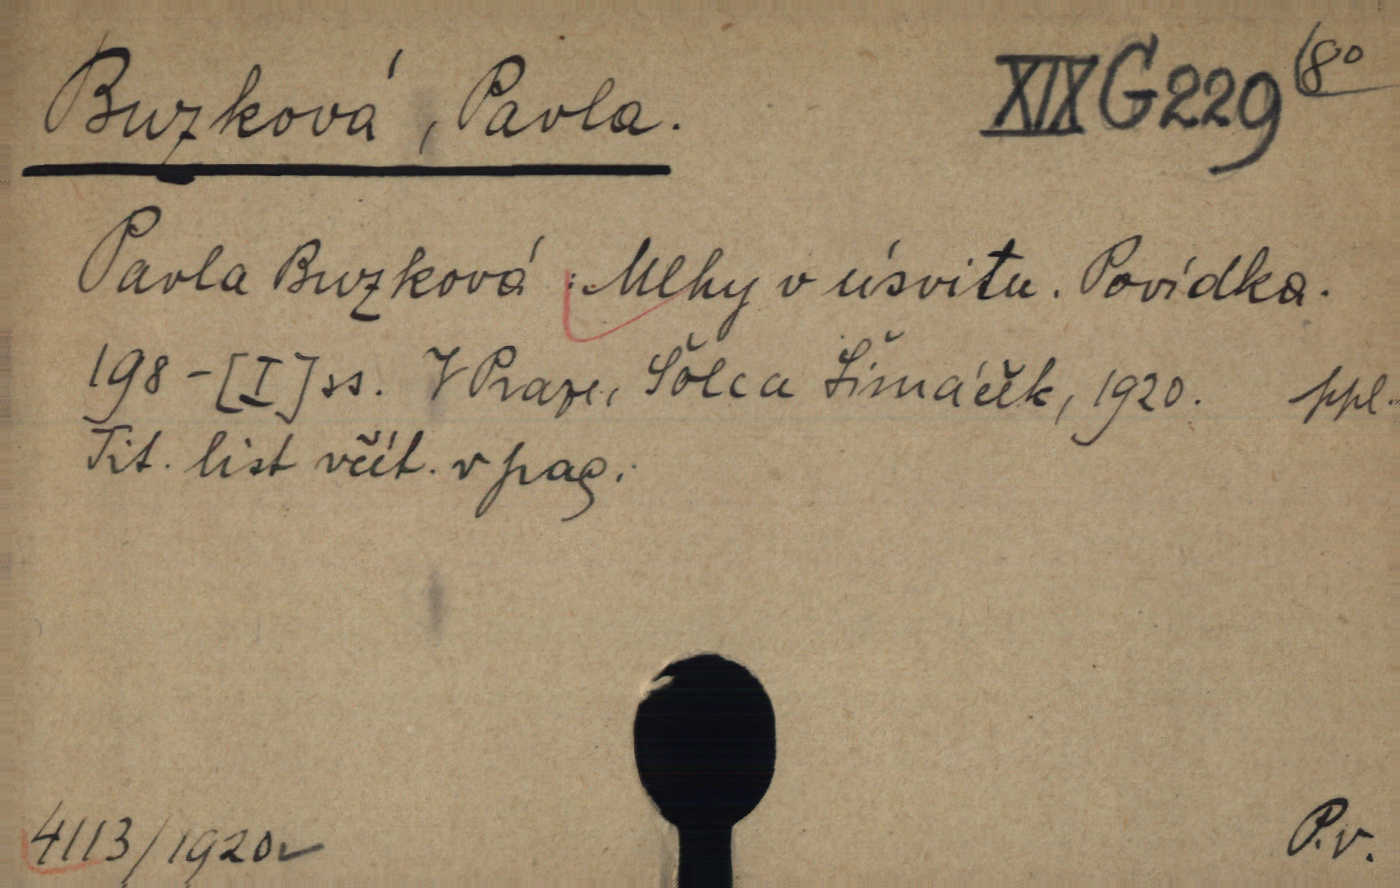 Buzková, Pavla.
XIX G 229
8°
Pavla Buzková: Mlhy v úsvitu. Povídka.
198 - [I] ss. V Praze, Šolc a Šimáček, 1920. ppl.
Tit. list včít. v pag.
4113/1920
P.v.